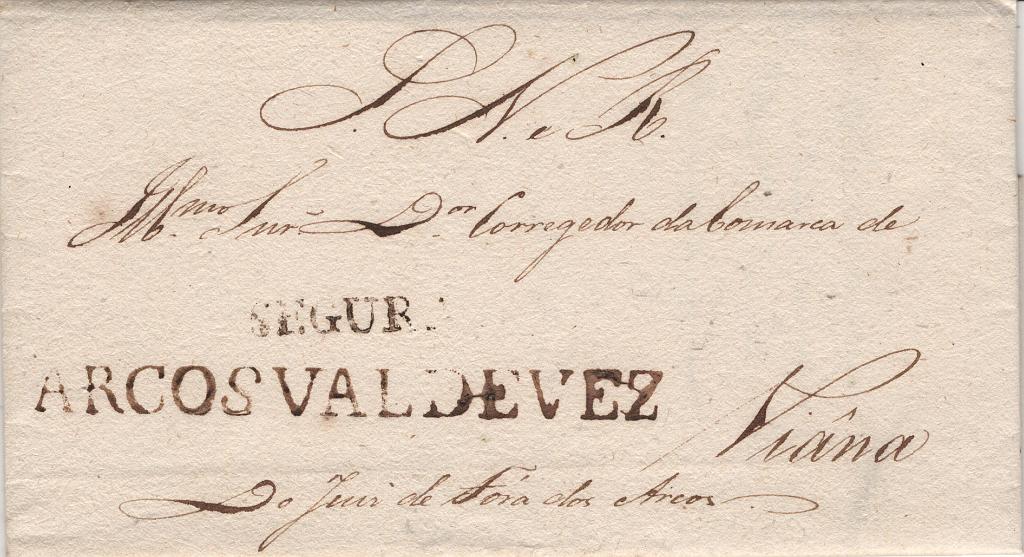 S. N. e R.
Illmo. Snr. Dor. Corregedor da Comarca de
SEGURA
ARCOS VAL DE VEZ
Viâna
Do Juiz de Fóra dos Arcos